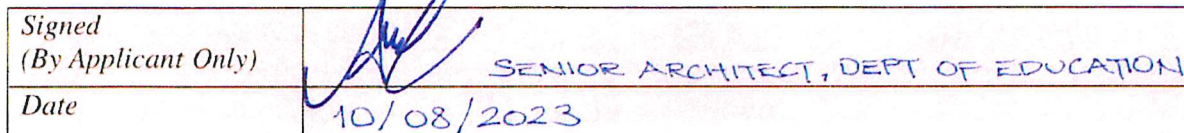 Signed
(By Applicant Only)
SENIOR ARCHITECT, DEPT OF EDUCATION
Date
10/08/2023